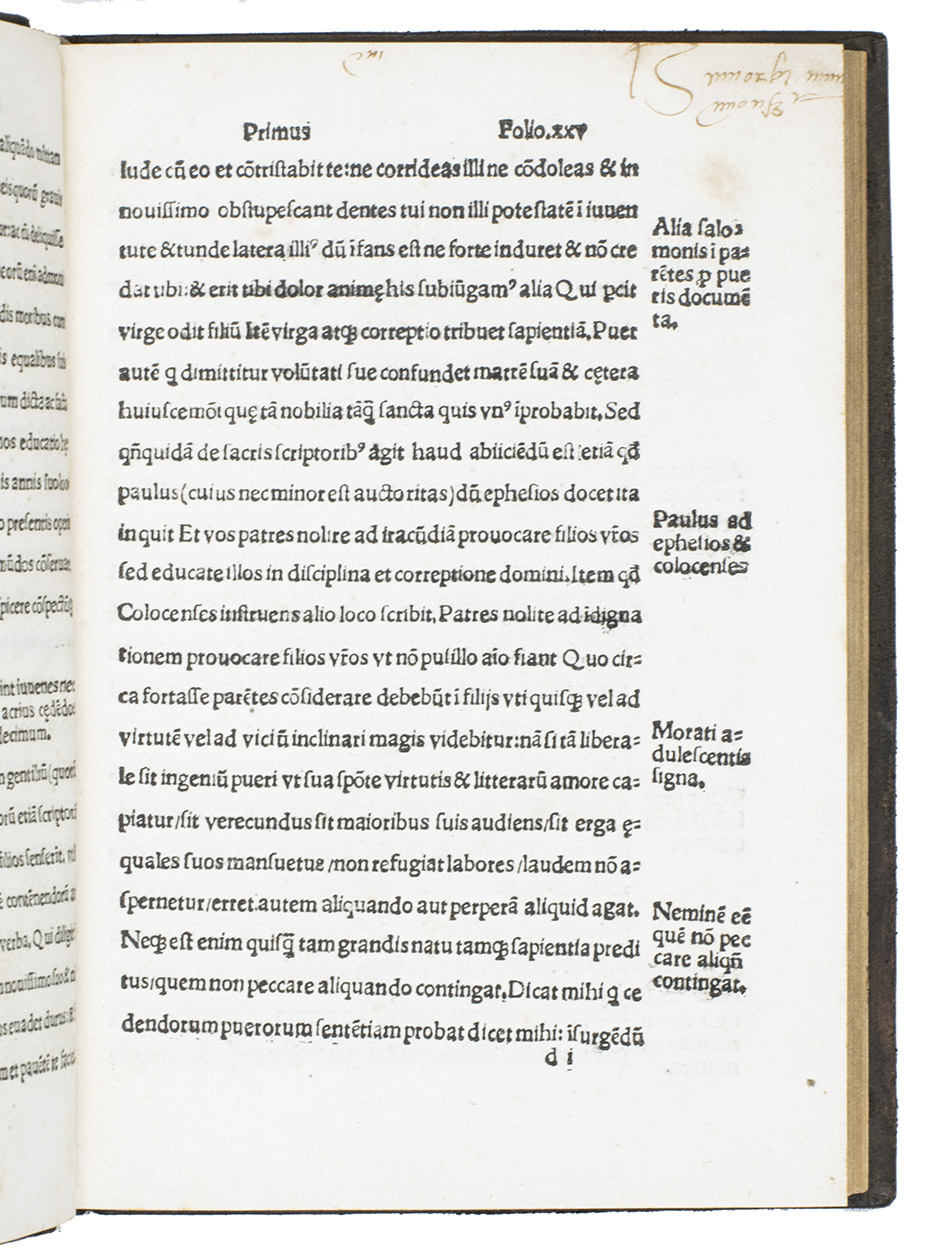 Primus Folio.xxv
lude cū eo et cōtristabit te:ne corrideas illi ne cōdoleas & in
nouissimo obstupescant dentes tui non illi potestatē ī iuuen
ture & tunde latera illiꝰ dū īfans est ne forte induret & nō cre
dat tibi:& erit tibi dolor animę his subiūgamꝰ alia Qui ꝑcit
virge odit filiū Itē virga atqꝫ correptio tribuet sapientiā. Puer
autē q dimittitur volūtati sue confundet matrē suā & cętera
huiuscemōi quę tā nobilia tāq̄ sancta quis vnꝰ īprobabit. Sed
qñquidā de sacris scriptoribꝰ agit haud abiiciēdū est etiā qđ
paulus (cuius nec minor est auctoritas) dū ephesios docet ita
inquit Et vos patres nolite ad iracūdiā prouocare filios vr̄os
sed educate illos in disciplina et correptione domini. Item qđ
Colocenses instruens alio loco scribit. Patres nolite ad idigna
tionem prouocare filios vr̄os vt nō pusillo aīo fiant Quo cir=
ca fortasse parētes cōsiderare debebūt ī filijs vti quisqꝫ vel ad
virtutē vel ad viciū inclinari magis videbitur:nā si tā libera=
le sit ingeniū pueri vt sua spōte virtutis & litterarū amore ca=
piatur/sit verecundus sit maioribus suis audiens/sit erga ę=
quales suos mansuetus/non refugiat labores/laudem nō a=
spernetur/erret.autem aliquando aut perperā aliquid agat.
Neqꝫ est enim quisq̄ tam grandis natu tamqꝫ sapientia predi
tus/quem non peccare aliquando contingat. Dicat mihi q ce
dendorum puerorum sentētiam probat dicet mihi: īsurgēdū
d i
Alia salo=
monis i pa=
rētes ꝓ pue
ris documē
ta.
Paulus ad
ephesios &
colocenses
Morati a=
dulescentis
signa.
Neminē eē
quē nō pec
care aliqñ
contingat.